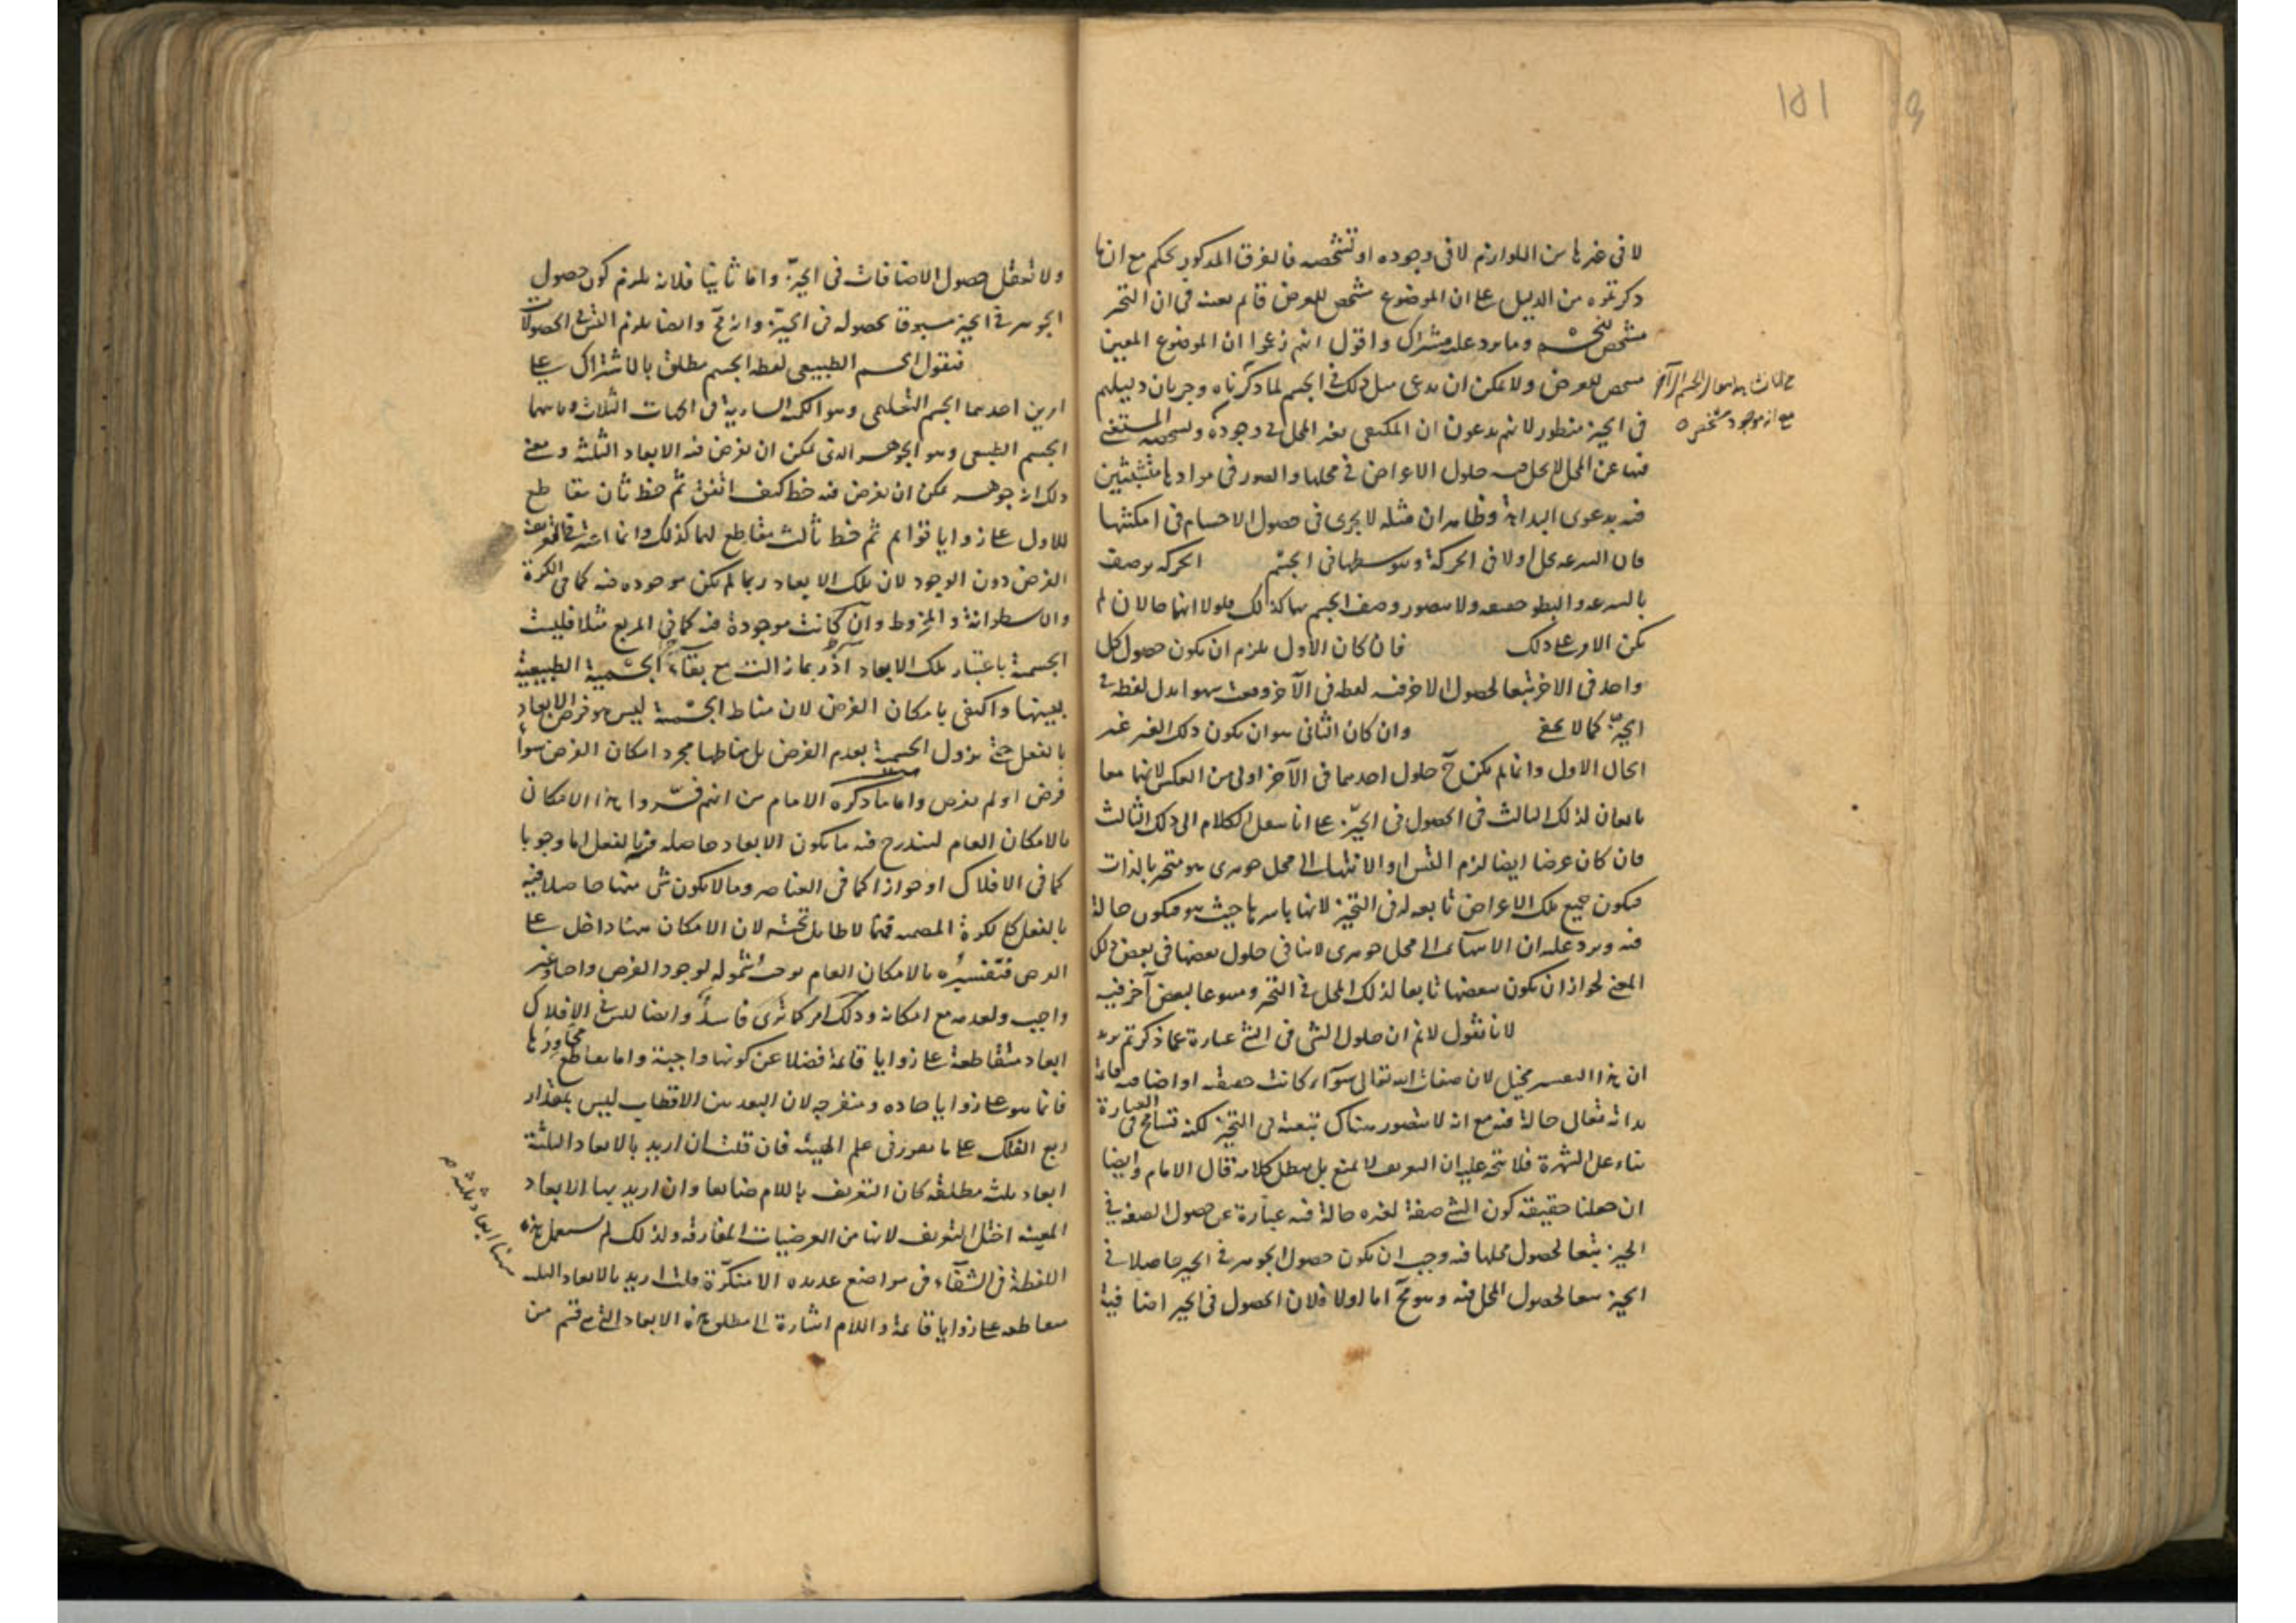 ١٥١
لا فى غيرها من اللوازم لا فى وجوده او تشخصه فالفرق المذكور تحكم مع ان ما
ذكرتموه من الدليل على ان الموضوع مشخص للعرض قائم بعينه فى ان التحيز
مشخص للجسم وما يرد عليه مشترك واقول انهم زعموا ان الموضوع المعين
مشخص للعرض ولا يمكن ان يدعى مثل ذلك فى الجسم لما ذكرناه وجريان دليلهم
مع انه موجود مشخص
فى الحيز منظور لانهم يدعون ان المكتفى بغير المحل فى وجوده وتشخصه المستغنى
فيها عن المحل لا يحل فيه حلول الاعراض فى محلها والصور فى موادها متشبثين
فيه بدعوى البداهة وظاهر ان مثله لا يجرى فى حصول الاجسام فى امكنتها
فان السرعة تحل اولا فى الحركة وبتوسطها فى الجسم الحركة توصف
بالسرعة والبطو حقيقة ولا يتصور وصف الجسم بها كذلك فلولا انها حالان لم
يكن الامر على ذلك فان كان الاول يلزم ان يكون حصول كل
واحد فى الاخر تبعا لحصول الاخر فيه لفظه فى الآخر وقعت سهوا بدل لفظه فى
الحيّز كما لا يخفى وان كان الثانى هو ان يكون ذلك الغير غير
الحال الاول وانما لم يكن ح حلول احدهما فى الآخر اولى من العكس لانهما معا
تابعان لذلك الثالث فى الحصول فى الحيّز على انا ننقل الكلام الى ذلك الثالث
فان كان عرضا ايضا لزم التسلسل او الانتهاء الى محل جوهرى هو متحيز بالذات
فيكون جميع تلك الاعراض تابعة له فى التحيز لانها باسرها حيث هو فيكون حالة
فيه ويرد عليه ان الانتهاء الى محل جوهرى لا ينافى حلول بعضها فى بعض بذلك
المعنى لجواز ان يكون بعضها تابعا لذلك المحل فى التحيز ومتبوعا لبعض آخر فيه
لانا نقول لانم ان حلول الشى فى الشئ عبارة عما ذكرتم يريد
ان هذا التفسير مختل لان صفات الله تعالى سوآء كانت حقيقية او اضافية قائمة
بذاته تعالى حالة فيه مع انه لا يتصور هناك تبعية فى التحيز لكنه تسامح فى العبارة
بناء على الشهرة فلا يتجه عليه ان التعريف لا يمنع بل يبطل كلامه قال الامام وايضا
ان جعلنا حقيقة كون الشئ صفة لغيره حالة فيه عبارة عن حصول الصفة فى
الحيز تبعا لحصول محلها فيه وجب ان يكون حصول الجوهر فى الحيز حاصلا فى
الحيز تبعا لحصول المحل فيه وهو مح اما اولا فلان الحصول فى الحيز اضافية
ولا تعقل حصول الاضافات فى الحيّز واما ثانيا فلانه يلزم كون حصول
الجوهر فى الحيز مسبوقا بحصوله فى الحيّز وانه مح وايضا يلزم التس فى الحصولات
فنقول الجسم الطبيعى لفظة الجسم تطلق بالاشتراك على
امرين احدهما الجسم التعليمى وهو الكم السارية فى الجهات الثلاث وثانيهما
الجسم الطبيعى وهو الجوهر الذى يمكن ان يفرض فيه الابعاد الثلثة ومعنى
ذلك انه جوهر يمكن ان يفرض فيه خط كيف اتفق ثم خط ثان مقاطع
للاول على زوايا قوائم ثم خط ثالث مقاطع لهما كذلك وانما اعتبر فى التعريف
الفرض دون الوجود لان تلك الابعاد ربما لم يكن موجودة فيه كما فى الكرة
والاسطوانة والمخروط وان كانت موجودة فيه كما فى المربع مثلا فليست
الجسمية باعتبار تلك الابعاد اذ ربما زالت مع بقاء الجسمية الطبيعية
بعينها واكتفى بامكان الفرض لان مناط الجسمية ليس هو فرض الابعاد
بالفعل حتى يزول الجسمية بعدم الفرض بل مناطها مجرد امكان الفرض سوآء
فرض او لم يفرض واما ما ذكره الامام من انهم فسّروا هذا الامكان
بالامكان العام ليندرج فيه ما يكون الابعاد حاصلة فيه بالفعل اما وجوبا
كما فى الافلاك او جوازا كما فى العناصر وما لا يكون شى منها حاصلا فيه
بالفعل كالكرة المصمتة فمما لا طائل تحته لان الامكان هنا داخل على
الفرض فتفسيره بالامكان العام يوجب شموله لوجود الفرض واجبا وغير
واجب ولعدمه مع امكانه وذلك امر كما ترى فاسد وايضا ليس فى الافلاك
ابعاد متقاطعة على زوايا قائمة فضلا عن كونها واجبة واما تقاطع محاورها
فانما هو على زوايا حادة ومنفرجه لان البعد بين الاقطاب ليس بمقدار
ربع الفلك على ما تقرر فى علم الهيئه فان قلت ان اريد بالابعاد الثلثة
ابعاد ثلث مطلقة كان التعريف باللام ضايعا وان اريد بها الابعاد
المعينة اختل التعريف لانها من العرضيات المفارقة ولذلك لم يستعمل هذه
اللفظة فى الشفآء فى مواضع عديده الا منكرّة قلت اريد بالابعاد الثلثة
متقاطعة على زوايا قائمة واللام اشارة الى مطلق هذه الابعاد التى هى قسم من
ههنا ابعاد ثلثة